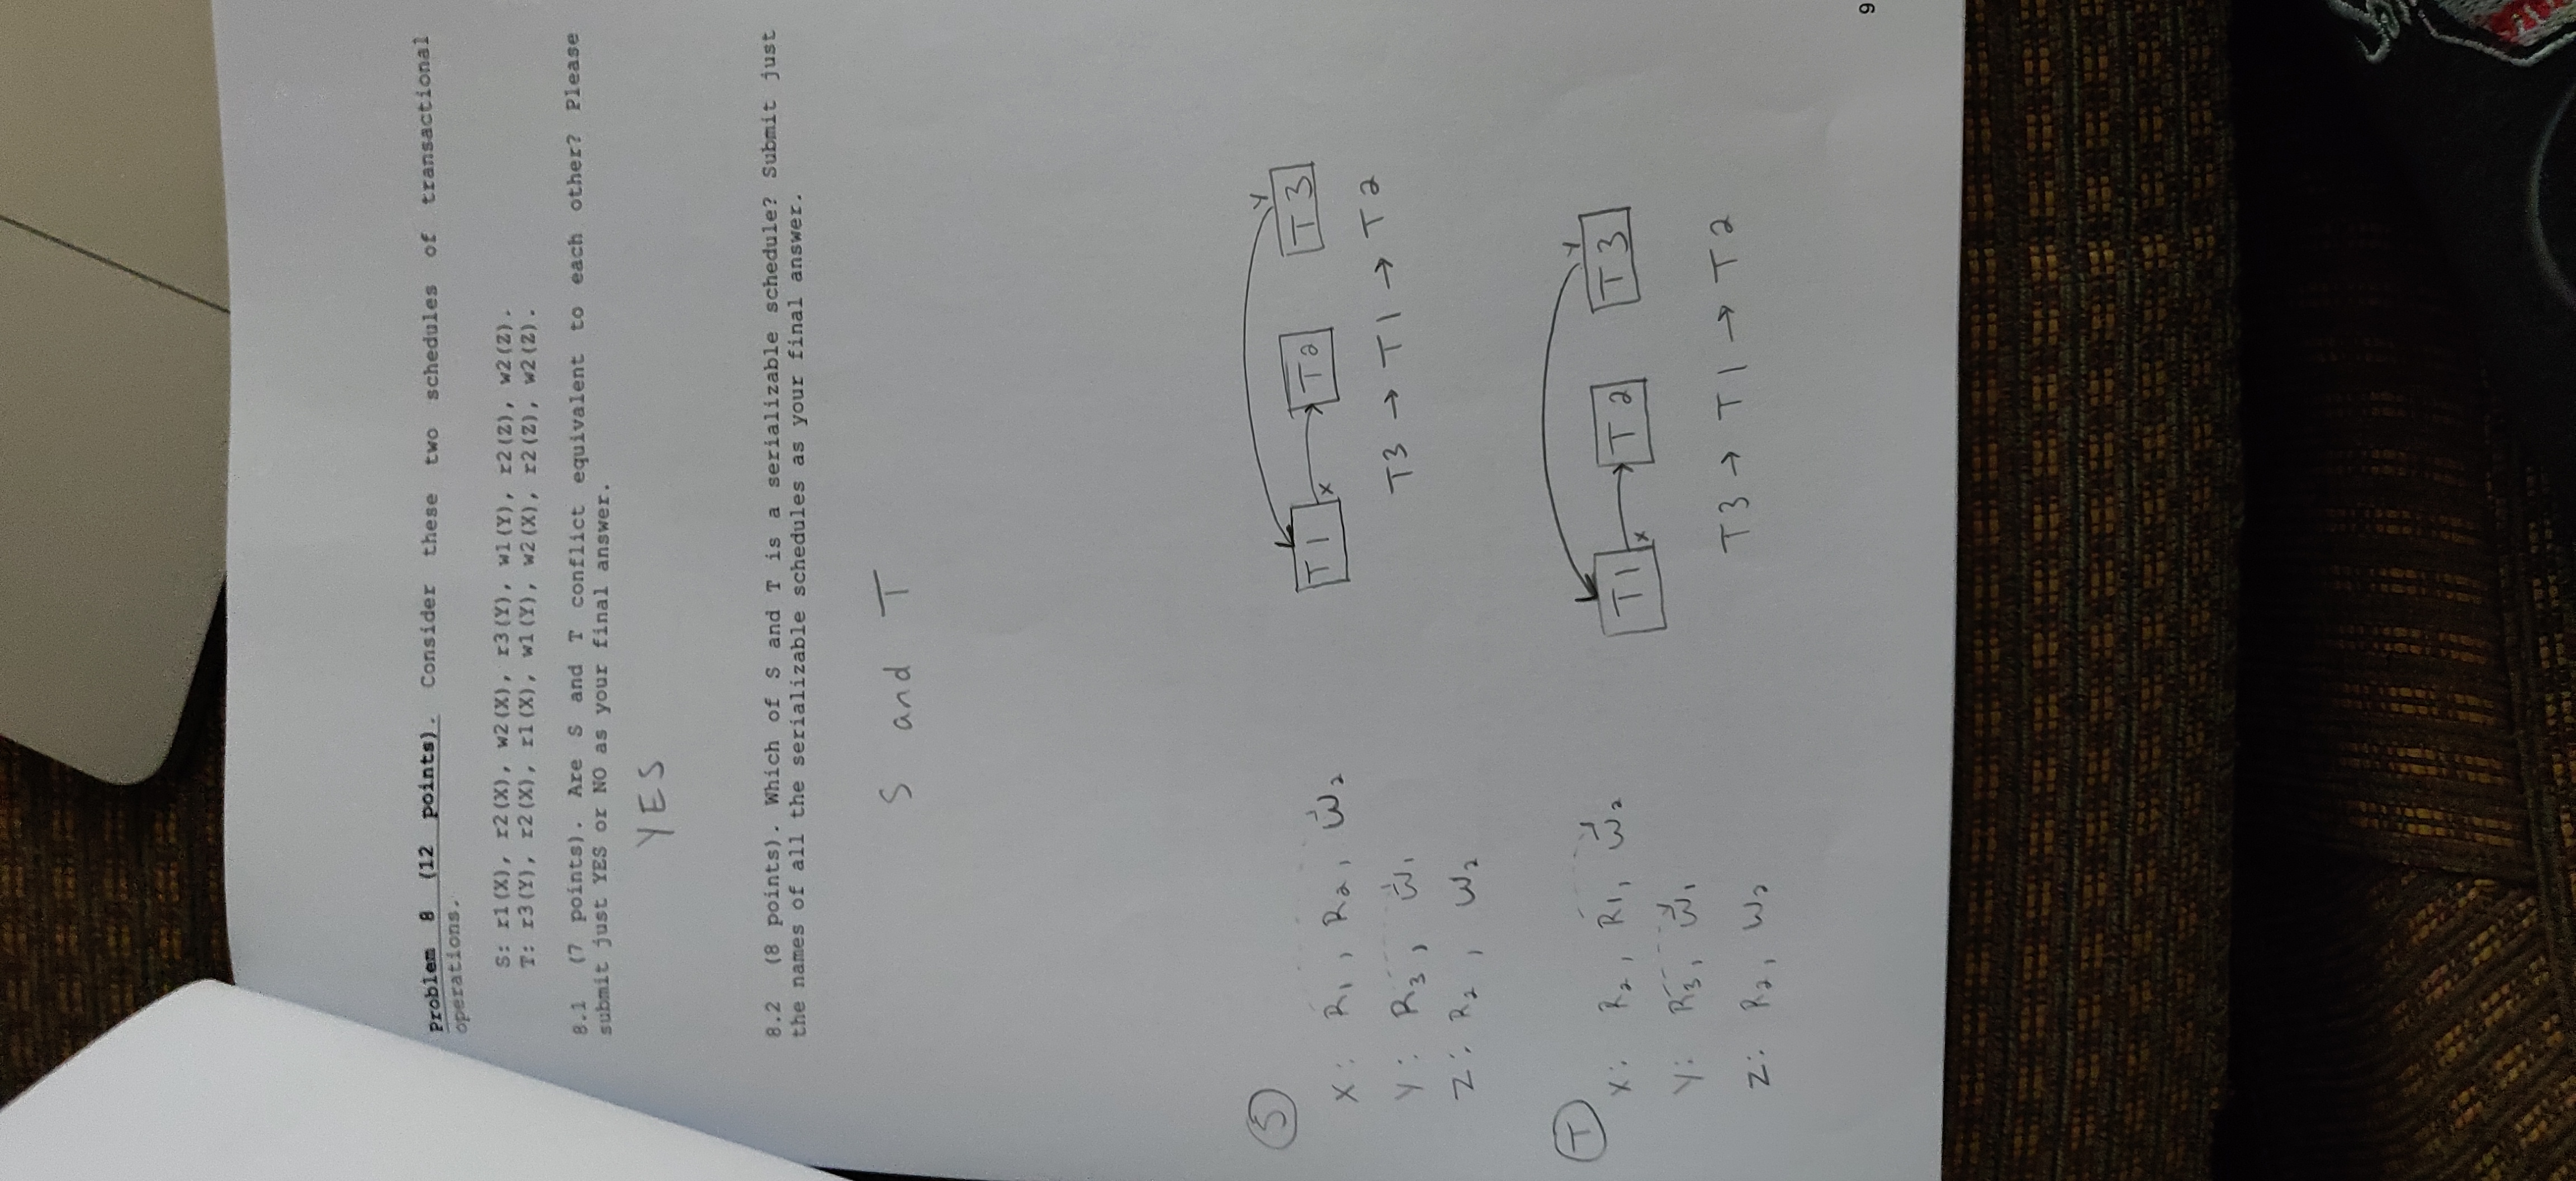 Problem 8 (12 points). Consider these two schedules of transactional
operations.
S: r1(X), r2(X), w2(X), r3(Y), w1(Y), r2(Z), w2(Z).
T: r3(Y), r2(X), r1(X), w1(Y), w2(X), r2(Z), w2(Z).
8.1 (7 points). Are S and T conflict equivalent to each other? Please
submit just YES or NO as your final answer.
YES
8.2 (8 points). Which of S and T is a serializable schedule? Submit just
the names of all the serializable schedules as your final answer.
S and T
S
X: R1, R2, W2
Y: R3, W1
Z: R2, W2
Y
T1 X T2 T3
T3 → T1 → T2
T
X: R2, R1, W2
Y: R3, W1
Z: R2, W2
Y
T1 X T2 T3
T3 → T1 → T2
9